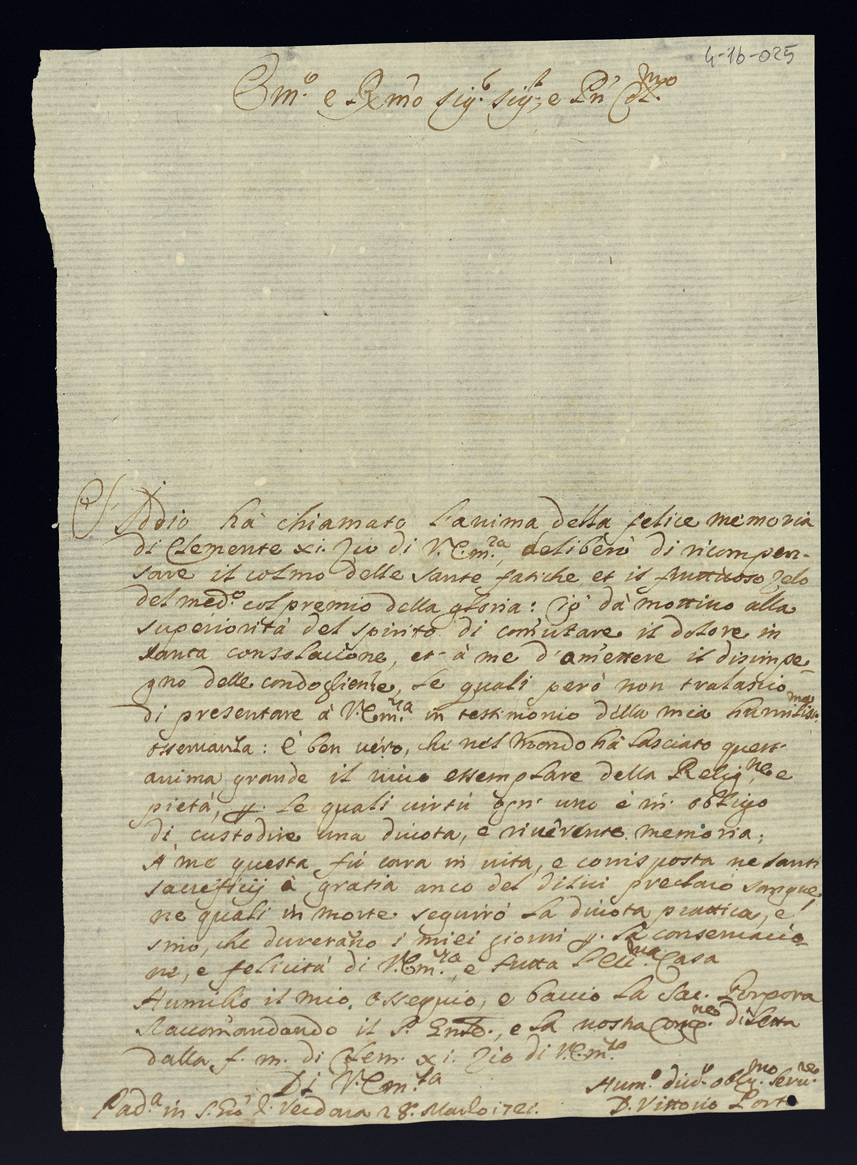 4-16-025
Em.º e Rmo Sig.r Sig.r e Pn Col.mo
Iddio hà chiamato l'anima della felice memoria
di Clemente xi. Zio di V. Em.za, deliberò di ricompen-
sare il colmo delle sante fatiche et il fruttuoso zelo
del med.º col premio della gloria: Ciò dà mottivo alla
superiorità del spirito di com'utare il dolore in
santa consolacione, et à me d'am'ettere il disimpe-
gno delle condoglienze, le quali però non tralascio
di presentare à V. Em.za in testimonio della mia humiliss.ma
osservanza: È ben vero, che nel Mondo hà lasciato quest'
anima grande il vivo essemplare della Relig.ne e
pietà, p. le quali virtù ogn' uno è in obligo
di custodire una divota, e riverente memoria;
A me questa fù cara in vita, e corrisposta ne santi
sacrificij à gratia anco del di lui preclaro sangue,
ne quali in morte seguirò la divota prattica, e
sino, che dureran'o i miei giorni p. la conservacio-
ne, e felicità di V. Em.za, e tutta l'Ecc.ma Casa
Humilio il mio ossequio, e baccio la Sac. Porpora
Raccom'andando il P. Gnle., e la nostra Cong.ne diletta
dalla f. m. di Clem. xi. Zio di V. Em.za
Di V. Em.za
Pad.a in S. Gio: d. Verdara 28. Marzo 1721.
Hum.º div.º oblig.mo Serv.re
D. Vittorio Porto